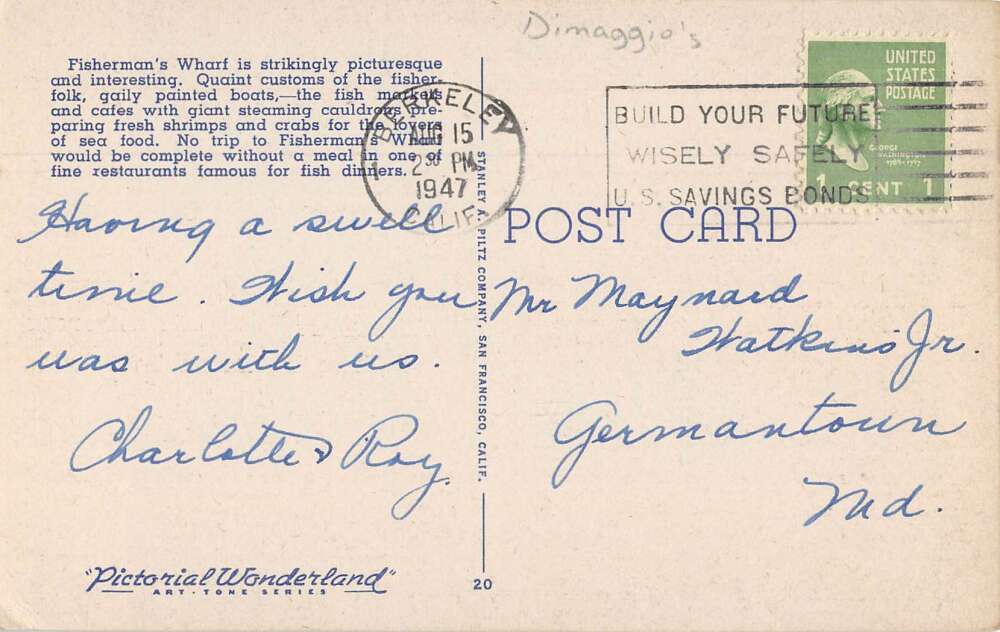 Dimaggio's
Fisherman's Wharf is strikingly picturesque
and interesting. Quaint customs of the fisher-
folk, gaily painted boats,—the fish markets
and cafes with giant steaming cauldrons pre-
paring fresh shrimps and crabs for the lovers
of sea food. No trip to Fisherman's Wharf
would be complete without a meal in one of
fine restaurants famous for fish dinners.
BERKELEY
AUG 15
2 30 PM
1947
CALIF.
BUILD YOUR FUTURE
WISELY SAFELY
U.S. SAVINGS BONDS
UNITED
STATES
POSTAGE
GEORGE
WASHINGTON
1789-1797
1 CENT 1
POST CARD
Having a swell
time. Wish you
was with us.
Charlotte & Roy.
STANLEY A. PILTZ COMPANY, SAN FRANCISCO, CALIF.
Mr Maynard
Watkins Jr.
Germantown
Md.
"Pictorial Wonderland"
ART-TONE SERIES
20